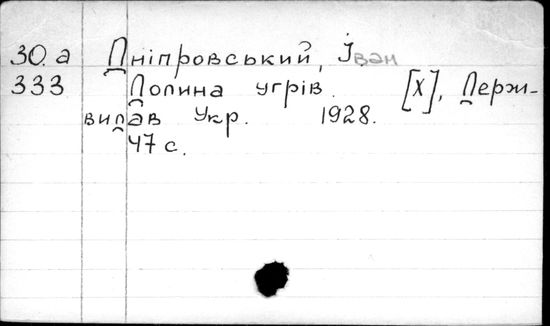 30.а Дніпровський, Іван
333 Долина угрів. [Х], Держ-
видав Укр. 1928.
47 с.